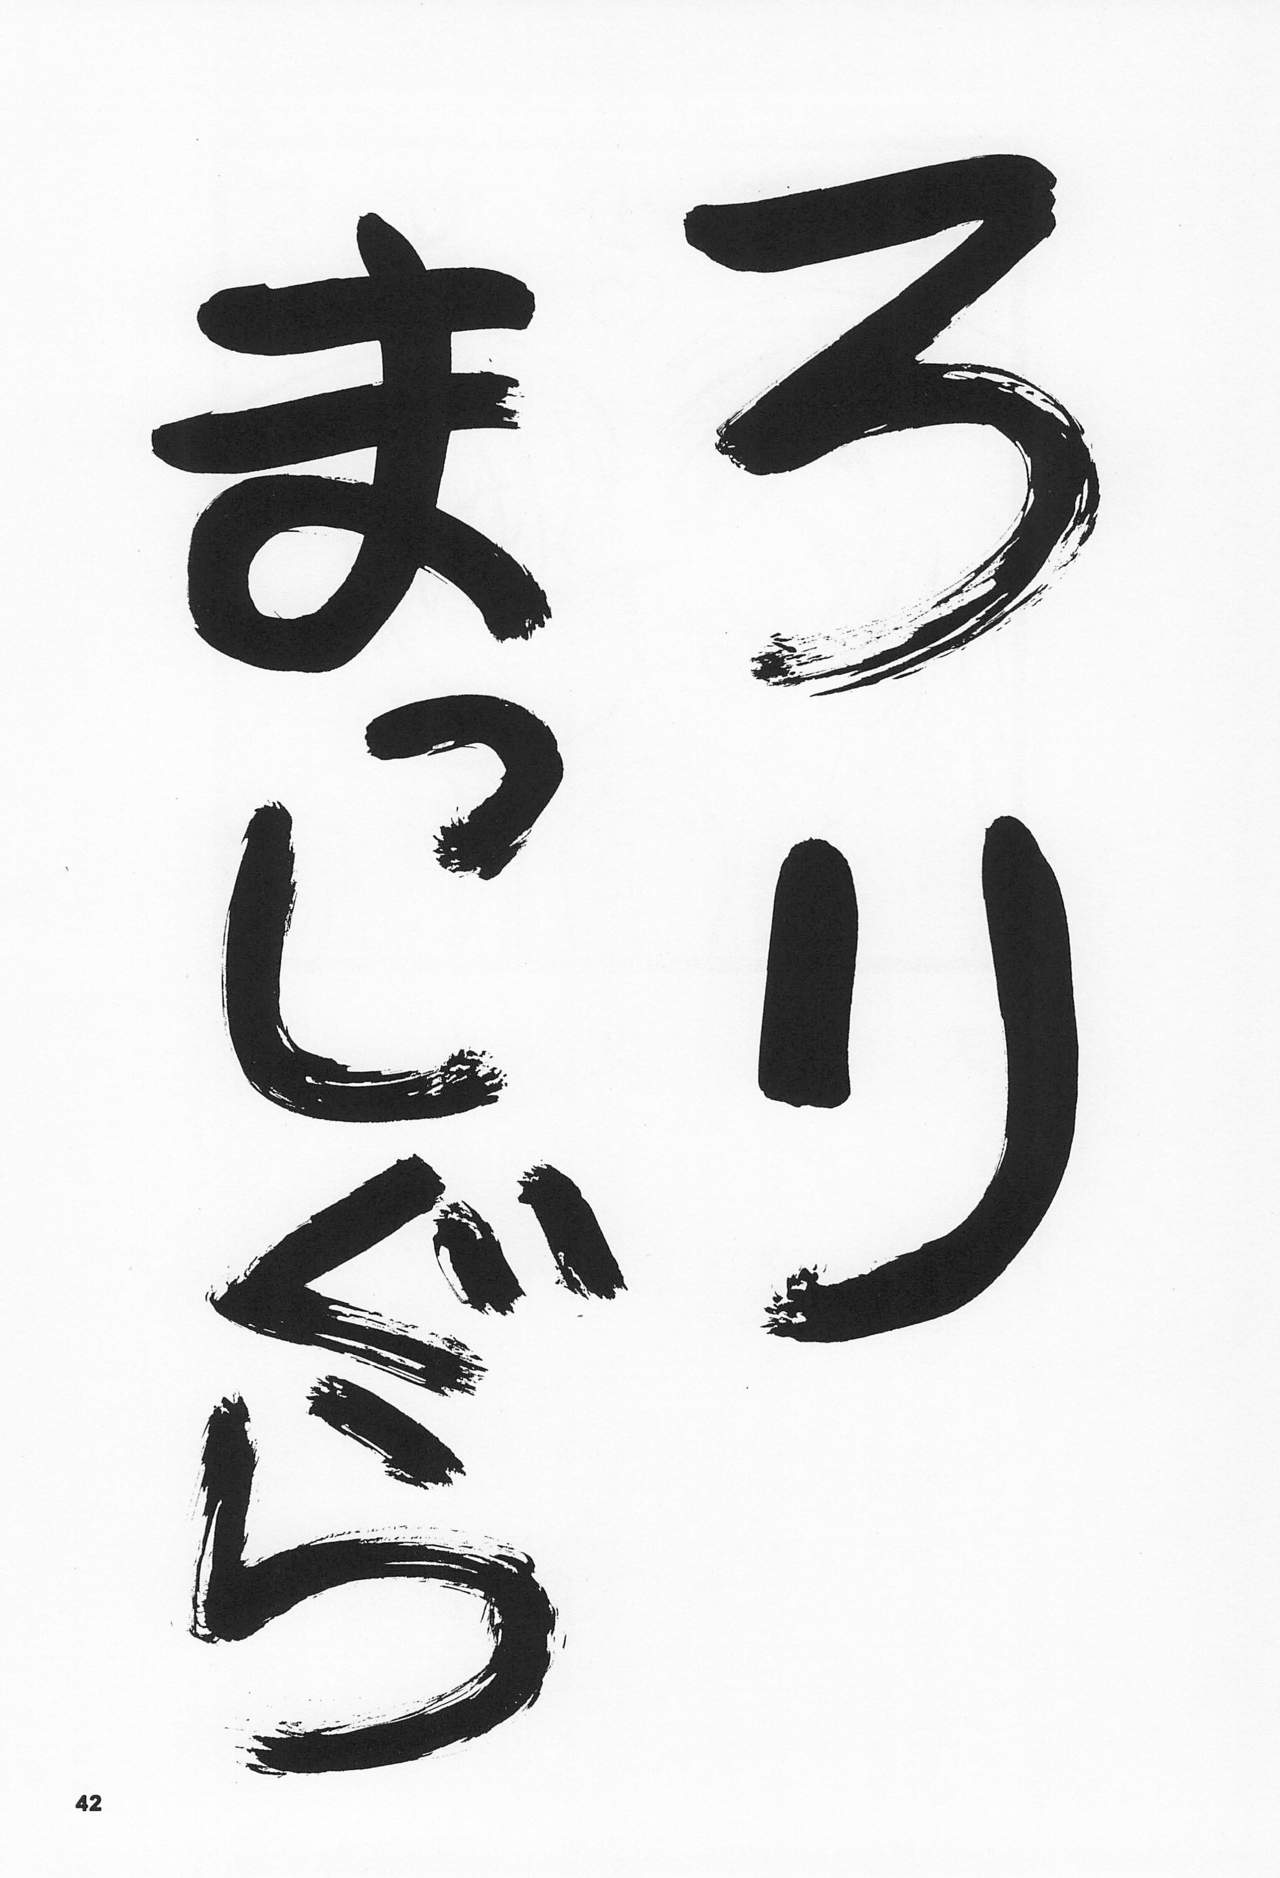 ろり
まっしぐら
42